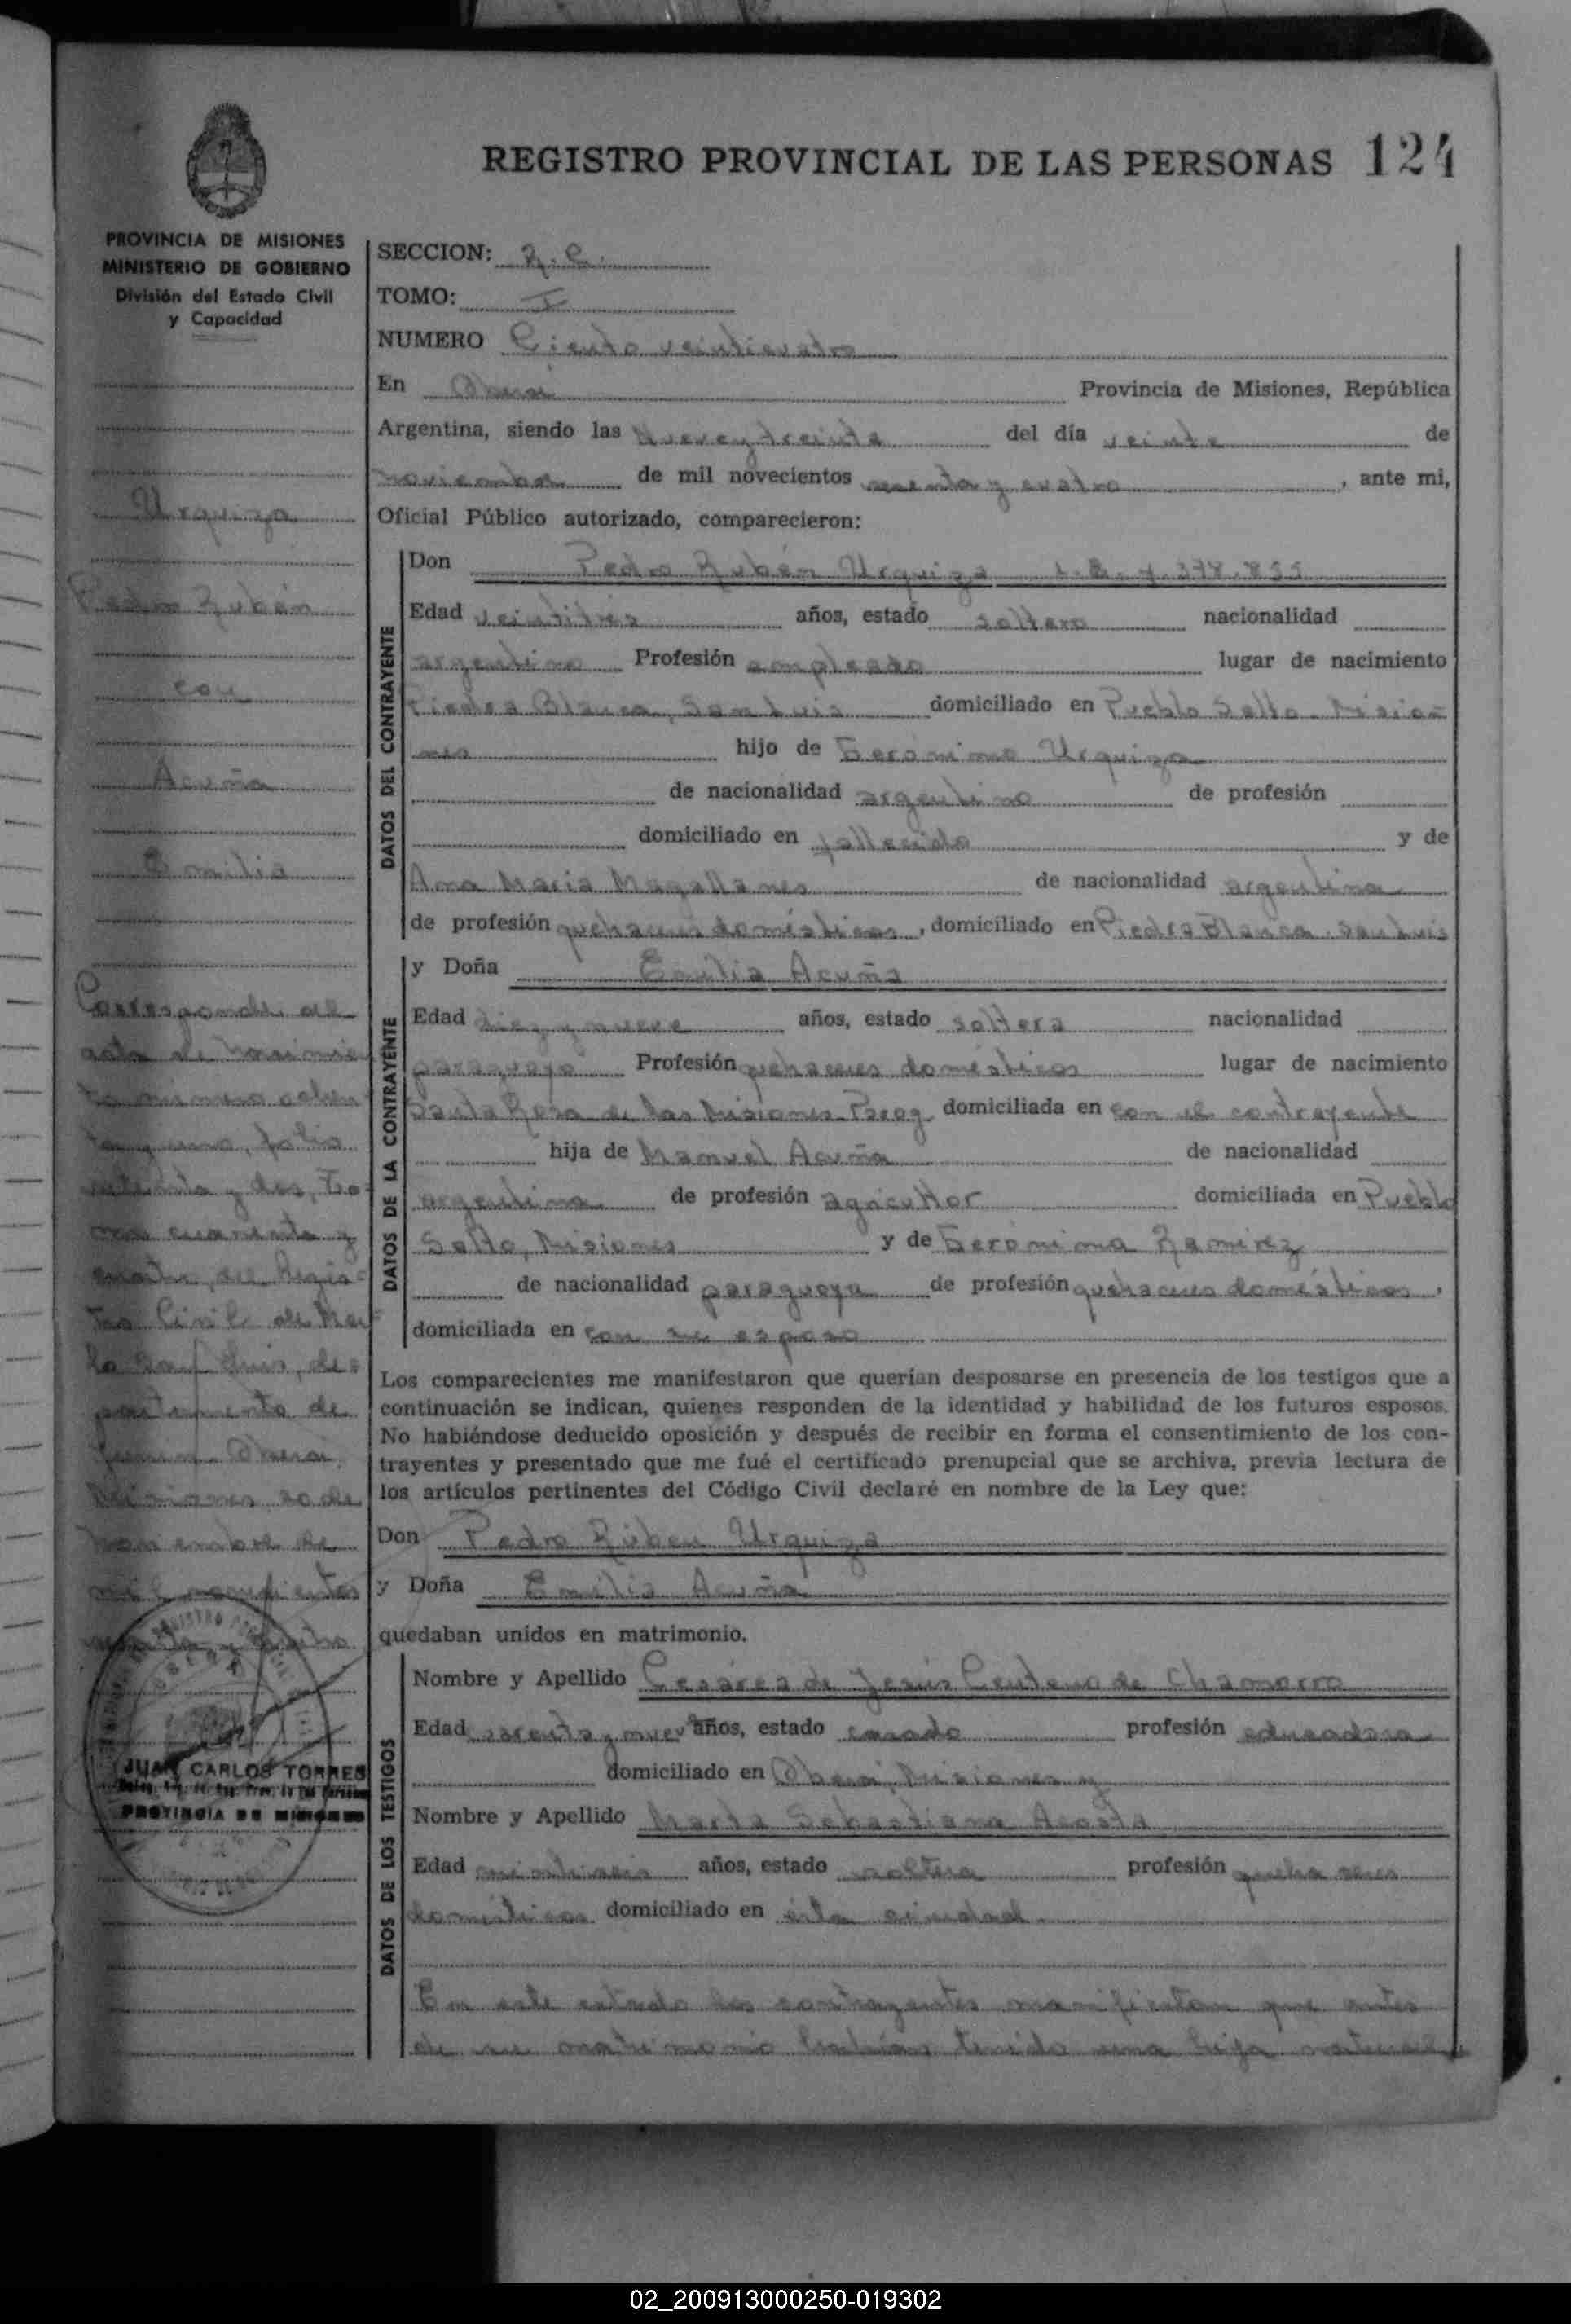 REGISTRO PROVINCIAL DE LAS PERSONAS 124
PROVINCIA DE MISIONES
MINISTERIO DE GOBIERNO
División del Estado Civil
y Capacidad
Urquiza
Pedro Rubén
con
Acuña
Emilia
Corresponde al
acta de nacimien
to número ochen
ta y uno, folio
setenta y dos, To-
mo cuarenta y
cuatro, del Regis-
tro Civil de Mer-
lo San Luis, de-
partamento de
Junin. Oberá,
Misiones 20 de
noviembre de
mil novecientos
sesenta y cuatro
JUAN CARLOS TORRES
PROVINCIA DE MISIONES
SECCION: R. C.
TOMO: I
NUMERO Ciento veinticuatro
En Oberá Provincia de Misiones, República
Argentina, siendo las nueve y treinta del día veinte de
noviembre de mil novecientos sesenta y cuatro, ante mi,
Oficial Público autorizado, comparecieron:
DATOS DEL CONTRAYENTE
Don Pedro Rubén Urquiza
Edad veintitrés años, estado soltero nacionalidad
argentino Profesión empleado lugar de nacimiento
Piedra Blanca, San Luis domiciliado en Pueblo Salto - Misio-
nes hijo de Gerónimo Urquiza
de nacionalidad argentino de profesión
domiciliado en fallecido y de
Ana María Magallanes de nacionalidad argentina
de profesión quehaceres domésticos, domiciliado en Piedra Blanca, San Luis
DATOS DE LA CONTRAYENTE
y Doña Emilia Acuña
Edad diez y nueve años, estado soltera nacionalidad
paraguaya Profesión quehaceres domésticos lugar de nacimiento
Santa Rosa de las Misiones Parag. domiciliada en con el contrayente
hija de Manuel Acuña de nacionalidad
argentina de profesión agricultor domiciliada en Pueblo
Salto, Misiones y de Gerónima Ramirez
de nacionalidad paraguaya de profesión quehaceres domésticos,
domiciliada en con su esposo
Los comparecientes me manifestaron que querían desposarse en presencia de los testigos que a
continuación se indican, quienes responden de la identidad y habilidad de los futuros esposos.
No habiéndose deducido oposición y después de recibir en forma el consentimiento de los con-
trayentes y presentado que me fué el certificado prenupcial que se archiva, previa lectura de
los artículos pertinentes del Código Civil declaré en nombre de la Ley que:
Don Pedro Rúben Urquiza
y Doña Emilia Acuña
quedaban unidos en matrimonio.
DATOS DE LOS TESTIGOS
Nombre y Apellido Cesárea de Jesús Centeno de Chamorro
Edad y nueve años, estado casado profesión educadora
domiciliado en Oberá, Misiones y
Nombre y Apellido Marta Sebastiana Acosta
Edad veintiseis años, estado soltera profesión quehaceres
domésticos domiciliado en esta ciudad.
En este estado los contrayentes manifiestan que antes
de su matrimonio habían tenido una hija natural
02_200913000250-019302